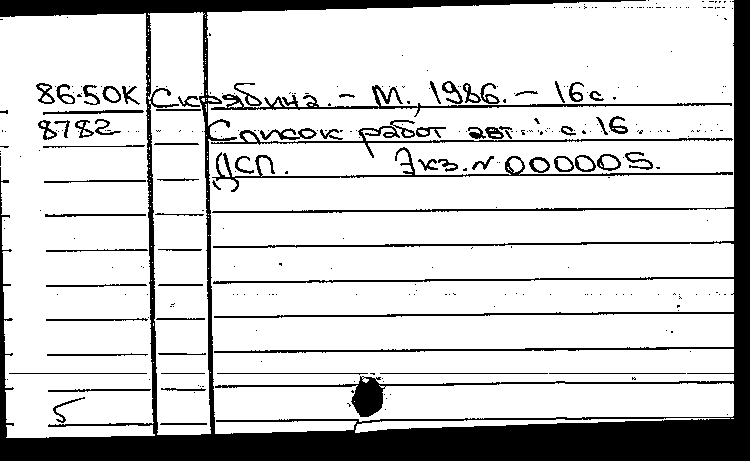 86-50К Скрябина. - М., 1986. - 16с.
8782 Список работ авт.: с. 16.
ДСП. Экз. N 000005.
5